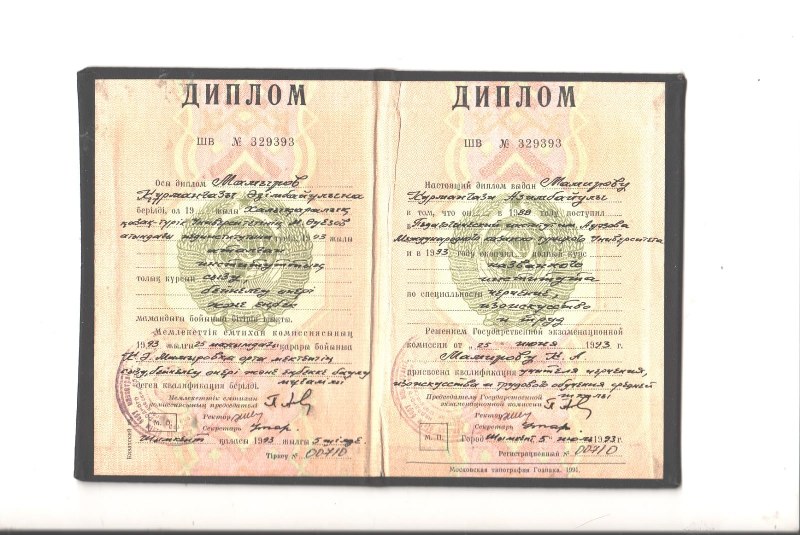 ДИПЛОМ
ШВ № 329393
Осы диплом Мамыров
Құрманғазы Әзімбайұлына
берілді, ол 19 жылы Халықаралық
қазақ-түрік Университетінің М. Әуезов
атындағы пединститутына түсіп, 1993 жылы
аталған
институттың
толық курсын сызу,
бейнелеу өнері
және еңбек
мамандығы бойынша бітіріп шықты.
Мемлекеттік емтихан комиссиясының
1993 жылғы 25 маусымдағы қарары бойынша
Қ. Ә. Мамыровқа орта мектептің
сызу, бейнелеу өнері және еңбекке баулу
мұғалімі
деген квалификация берілді.
Мемлекеттік емтихан
комиссиясының председателі
Ректор
Секретарь
М. О.
Шымкент қаласы 1993 жылғы 5 шілде.
Тіркеу № 00710
ДИПЛОМ
ШВ № 329393
Настоящий диплом выдан Мамырову
Курмангази Азимбайулы
в том, что он в 1988 году поступил
в Педагогический институт им. Ауэзова
Международного казахско-турецкого Университета
и в 1993 году окончил полный курс
названного
института
по специальности черчение,
изоискусство
и труд
Решением Государственной экзаменационной
комиссии от „25“ июня 1993 г.
Мамырову К. А.
присвоена квалификация учителя черчения,
изоискусства и трудового обучения средней
школы
Председатель Государственной
экзаменационной комиссии
Ректор
Секретарь
М. П.
Город Шымкент, 5 июль 1993 г.
Регистрационный № 00710
Московская типография Гознака. 1991.